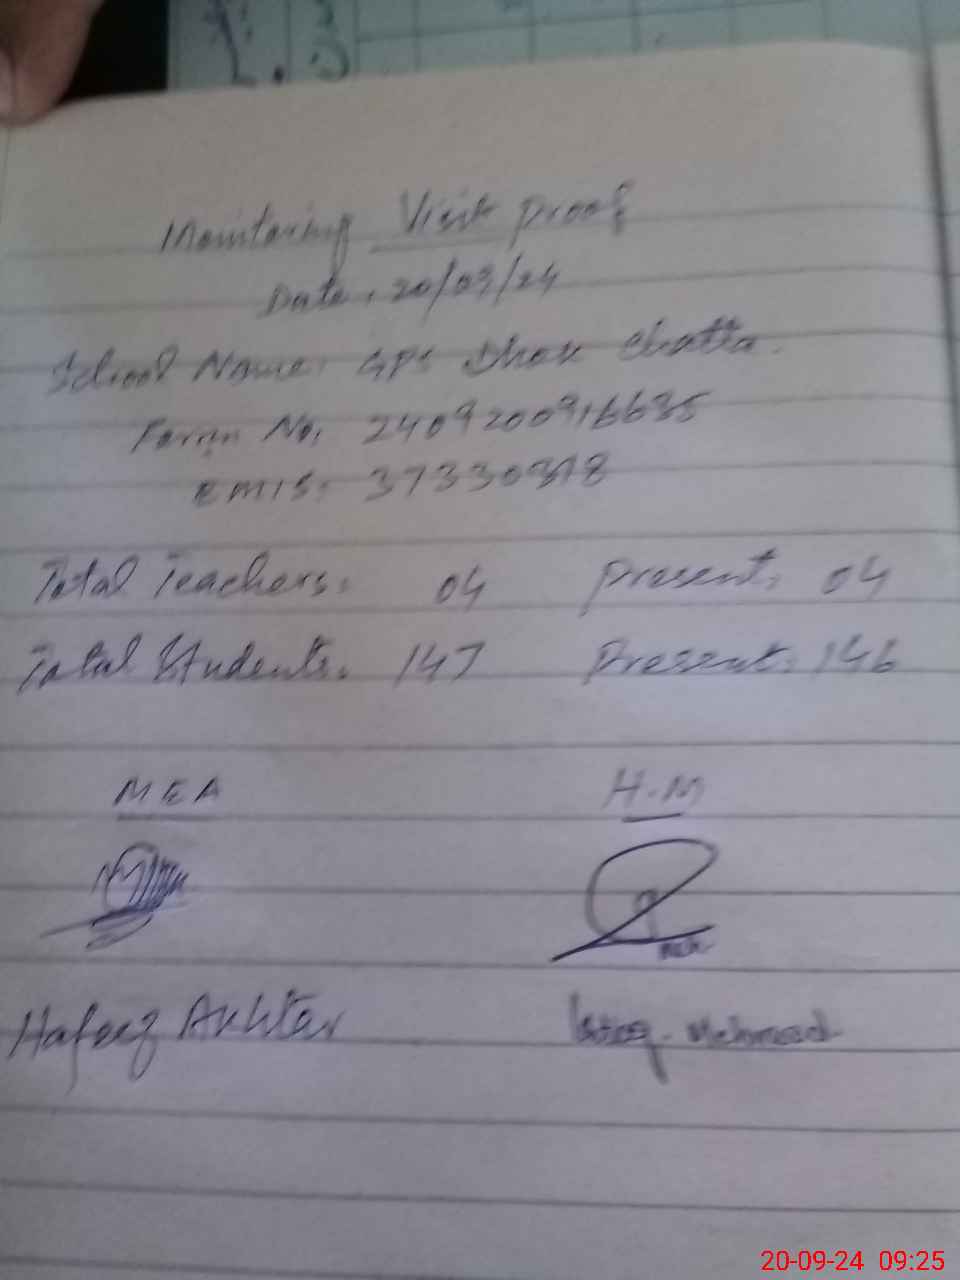 Monitoring Visit Proof
Date: 20/09/24
School Name: GPS Dhok Chatta.
Form No: 2409200916685
EMIS: 37330318
Total Teachers: 04 Present: 04
Total Students: 147 Present: 146
MEA H.M
Hafeez Akhter Mehmood
20-09-24 09:25